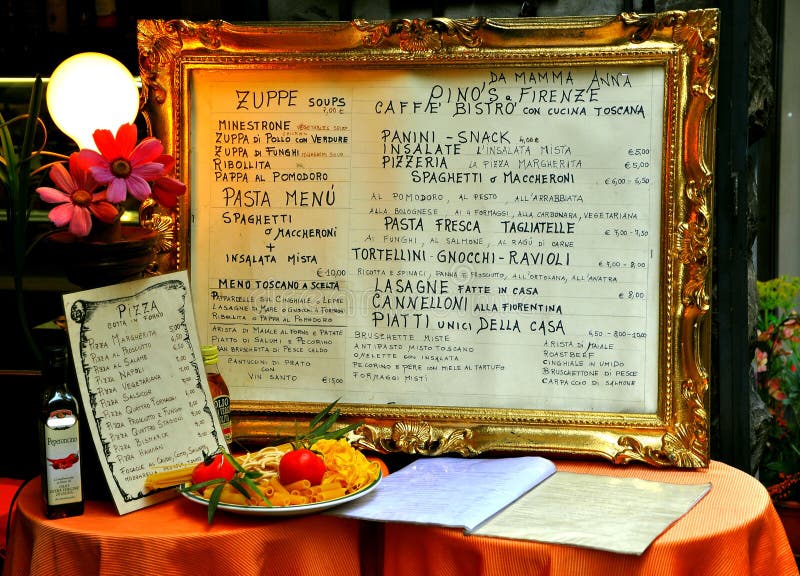 ZUPPE SOUPS
7,00 €
MINESTRONE VEGETABLES SOUP
ZUPPA DI POLLO CON VERDURE
ZUPPA DI FUNGHI
RIBOLLITA
PAPPA AL POMODORO
PASTA MENÚ
SPAGHETTI
O MACCHERONI
+
INSALATA MISTA
€ 10,00
MENU TOSCANO A SCELTA
PAPPARDELLE SUL CINGHIALE O LEPRE
LASAGNE DI MARE O GNOCCHI
RIBOLLITA O PAPPA AL POMODORO
ARISTA DI MAIALE AL FORNO E PATATE
PIATTO DI SALUMI E PECORINO
BRUSCHETTA DI PESCE CALDO
CANTUCCINI DI PRATO
CON
VIN SANTO € 15,00
DA MAMMA ANNA
PINO'S a FIRENZE
CAFFÈ BISTRÒ CON CUCINA TOSCANA
PANINI - SNACK 4,00 €
INSALATE L'INSALATA MISTA € 5,00
PIZZERIA LA PIZZA MARGHERITA € 5,00
SPAGHETTI O MACCHERONI € 6,00 - 6,50
AL POMODORO, AL PESTO, ALL'ARRABBIATA
ALLA BOLOGNESE, AI 4 FORMAGGI, ALLA CARBONARA, VEGETARIANA
PASTA FRESCA TAGLIATELLE € 7,00 - 7,50
AI FUNGHI, AL SALMONE, AL RAGÚ DI CARNE
TORTELLINI - GNOCCHI - RAVIOLI € 7,00 - 8,00
RICOTTA E SPINACI, PANNA E PROSCIUTTO, ALL'ORTOLANA, ALL'ANATRA
LASAGNE FATTE IN CASA
CANNELLONI ALLA FIORENTINA € 8,00
PIATTI UNICI DELLA CASA
6,50 - 8,00 - 10,00
BRUSCHETTE MISTE
ANTIPASTO MISTO TOSCANO
OMELETTE CON INSALATA
PECORINO E PERE CON MIELE AL TARTUFO
FORMAGGI MISTI
ARISTA DI MAIALE
ROASTBEEF
CINGHIALE IN UMIDO
BRUSCHETTONE DI PESCE
CARPACCIO DI SALMONE
PIZZA
COTTA IN FORNO
PIZZA MARGHERITA 5,00
PIZZA AL PROSCIUTTO
PIZZA AL SALAME
PIZZA NAPOLI
PIZZA VEGETARIANA
PIZZA SALSICCIA
PIZZA QUATTRO FORMAGGI
PIZZA PROSCIUTTO E FUNGHI
PIZZA QUATTRO STAGIONI
PIZZA BISMARK
PIZZA HAWAIAN
Peperoncino
OLIO